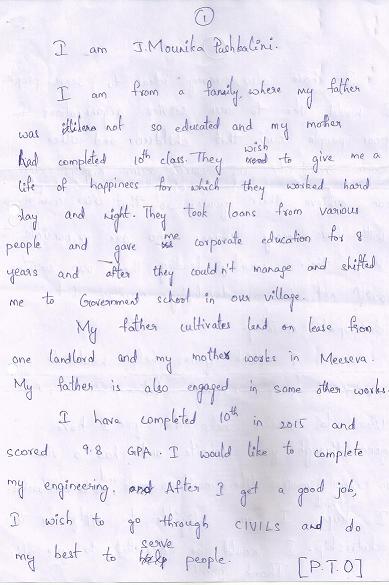 1
I am J. Mounika Pushbalini.
I am from a family, where my father
was not so educated and my mother
had completed 10th class. They wish to give me a
life of happiness for which they worked hard
day and night. They took loans from various
people and gave me corporate education for 8
years and after they couldn't manage and shifted
me to Government school in our village.
My father cultivates land on lease from
one landlord and my mother works in Meeseva.
My father is also engaged in some other works.
I have completed 10th in 2015 and
scored 9.8 GPA. I would like to complete
my engineering. After I get a good job,
I wish to go through CIVILS and do
my best to serve people. [P.T.O]